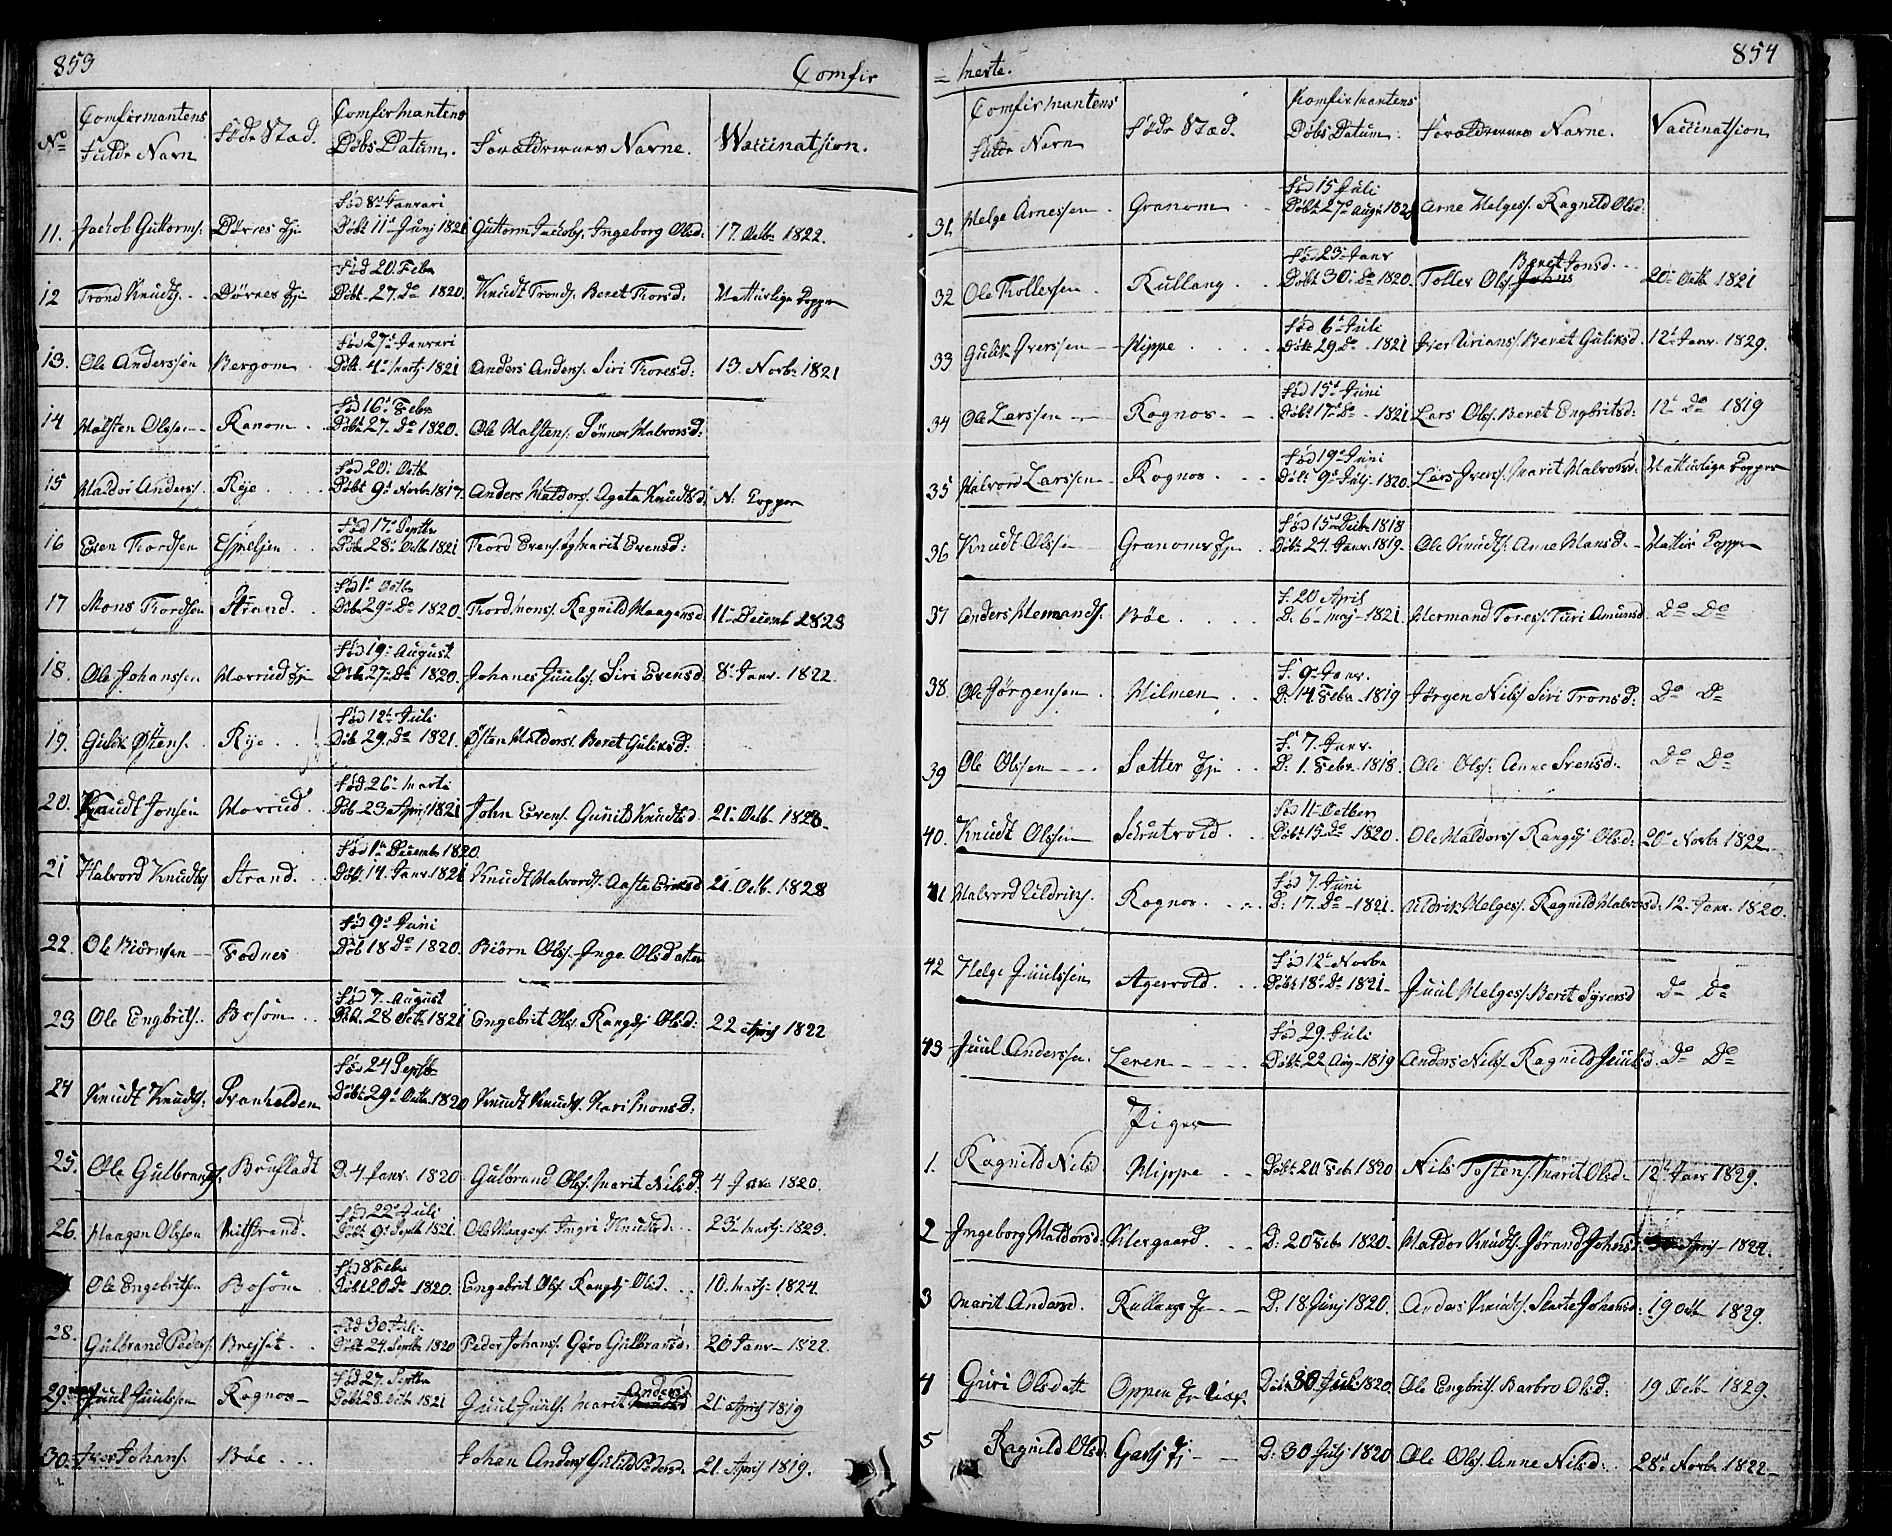 853
Comfir
No
Comfirmantens Fulde Navn
Føde Stad.
Comfirmantens Døbs Datum.
Forældrernes Navne.
Waccinatsion.
11. Jackob Guttorms: Børnes Eje Fød 8de Januari Døbt 11te Junj 1821 Guttorm Jackobs. Ingeborg Olsd: 17. Octbr 1822.
12 Trond Knudts. Børnes Eje Fød 20. Febr Døbt 27. Do 1820. Knudt Tronds. Beret Thorsd: Natturlige Copper
13. Ole Anderssen Bergom Fød 27de Januari Døbt 4de Martj 1821 Anders Anders. Siri Thoresd: 13. Novbr 1821
14 Halsten Olssen Ranom Fød 16de Febr Døbt 27. Do 1820. Ole Halstens: Halvorsd:
15 Haldor Anders. Røje Fød 20: Octb Døbt 9de Novbr 1817. Anders Haldors. Agata Knudtsd: N. Copper
16 Even Thordsen Espeljen Fød 17de Septbr Døbt 28de Octb 1821 Thord Evens. og Marit Evensd:
17 Mons Thordsen Strand. Fød 1de Octbr Døbt 29de Do 1820. Thord Mons. Ragnild Haagensd: 11te Decemb 1823
18. Ole Johanssen Morrud Eje Fød 19: August Døbt 27de Do 1820. Johanes Juuls. Siri Evensd: 8de Janr. 1822.
19. Gulik Østens. Røje Fød 12te Juli Døbt 29. Do 1821. Østen Haldors. Beret Guliksd:
20. Knudt Jonsen Morrud Fød 26de Marti Døbt 23 Aprj 1821 John Evens. Gunild Knudtsd 21de Octb. 1823.
21 Halvord Knudts Strand. Fød 1te Decembr 1820 Døbt 14. Janr 1821 Knudt Halvords. Aaste Eriksd 21. Octb. 1828
22. Ole Biørnsen Fodnes Fød 9de Juni Døbt 18 Do 1820. Biørn Ols. Inge Olsdatter
23 Ole Engbrits. Bosom Fød 7. August Døbt. 28 Octb 1821 Engebrit Ols. Rangdj Olsd: 22 April 1822
24 Knudt Knudts: Fød 24 Septb Døbt 29de Octb. 1820 Knudt Knudts. Kari Monsd:
25. Ole Gulbrands. Brufladt D: 4 Janr. 1820. Gulbrand Ols. Marit Nilsd. 4 Janr 1820.
26. Haagen Olsson Midstrand. Fød 22de Juli Døbt 9de Septb 1821. Ole Haagens. Ingri Knudtsd. 23de Martj 1823.
Ole Engebrits. Bosom Fød 8 Febr Døbt 20. Do 1820. Engebrit Ols Rangdj Olsd. 10. Martj 1824.
28. Gulbrand Peders. Fød 30 Juli Døbt 24. Septb 1820 Peder Johans. Gøro Gulbransd: 20 Janr 1822.
29. Juul Juulssen Rognos Fød 27. Septbr Døbt 28. Octb 1821 Juul Juuls. Marit Andersd 21 April 1819
30. Iver Johans. Bøe Johan Anders Gulild Pedersd. 21. April 1819.
= merte.
854
Comfirmantens Fulde Navn
Føde Stæd.
Komfirmantens Døbs Datum.
Forældrernes Navne.
Vaccinatsion
31. Helge Arnessen. Granom Fød 15 Juli Døbt 27de Augu 1820 Arne Helges. Ragnild Olsd
32 Ole Thollefsen. Kullang Fød 23de Janr Døbt 30. Do 1820. Tollev Ols. Beret Jonsd. 20de Octb 1821
33 Gulik Iverssen Hippe Fød 6te Juli Døbt 29. Do 1821 Iver Urians. Beret Guliksd. 12te Janr 1829.
34 Ole Larssen Rognos. Fød 15de Juni Døbt 17de Do 1821 Lars Ols. Beret Engbritsd: 12te Do 1819
35 Halvord Larssen Rognos. Fød 19de Juni Døbt 9de Julj 1820. Lars Ivers. Marit Halvorsd. Natturlige Copper
36 Knudt Olssen Granoms Eje Fød 15de Decbr 1818 Døbt 24. Janr 1819. Ole Knudts. Anne Hansd. Nattur Copper
37 Anders Hermands. Bøe F: 20 April D: 6te Maj 1821. Hermand Tores. Turi Amunsd. Do Do
38. Ole Jørgensen. Hilmen F: 9de Janr. D: 14 Febr 1819 Jørgen Nils Siri Tronsd: Do Do
39 Ole Olssen Satter Eje F: 7. Janr. D: 1. Febr. 1818. Ole Ols: Anne Svensd: Do Do
40. Knudt Olssen Skrutvold. Fød 11te Octber Døbt 15. Do 1820. Ole Haldors. Rangdj Olsd: 20de Novbr 1822.
41 Halvord Uldriks. Rognos. Fød 7. Juni D: 17. Do 1821. Uldrik Helges. Ragnild Halvorsd: 12. Janr. 1820.
42 Helge Juulssen Agervold. Fød 12te Novbr Døbt 18de Do 1821 Juul Helges. Berit Syversd Do Do
43 Juul Anderssen. Leren Fød 29. Juli Døbt 22 Aug 1819 Anders Nils Ragnild Juulsd. Do Do
Piger
1. Ragnild Nilsd Hippe Døbt 20 Feb. 1820 Nils Tostens. Marit Olsd 12te Janr 1829.
2 Ingeborg Haldorsd: Klergaard. D: 20 Feb 1820. Haldor Knudts. Jørand Johnsd: April 1824.
3 Marit Andersd. Kullangs Eje D. 18. Junj 1820. Anders Knudts. Johansd: 19 Octb 1829.
4 Guri Olsdatt Oppen Eje Døbt 30 Juli 1820. Ole Engbrits. Barbro Olsd: 19 Octb 1829.
5 Ragnild Olsd. Garts Ej D: 30 Julj 1820 Ole Ols. Anne Nilsd: 28de Novbr 1822